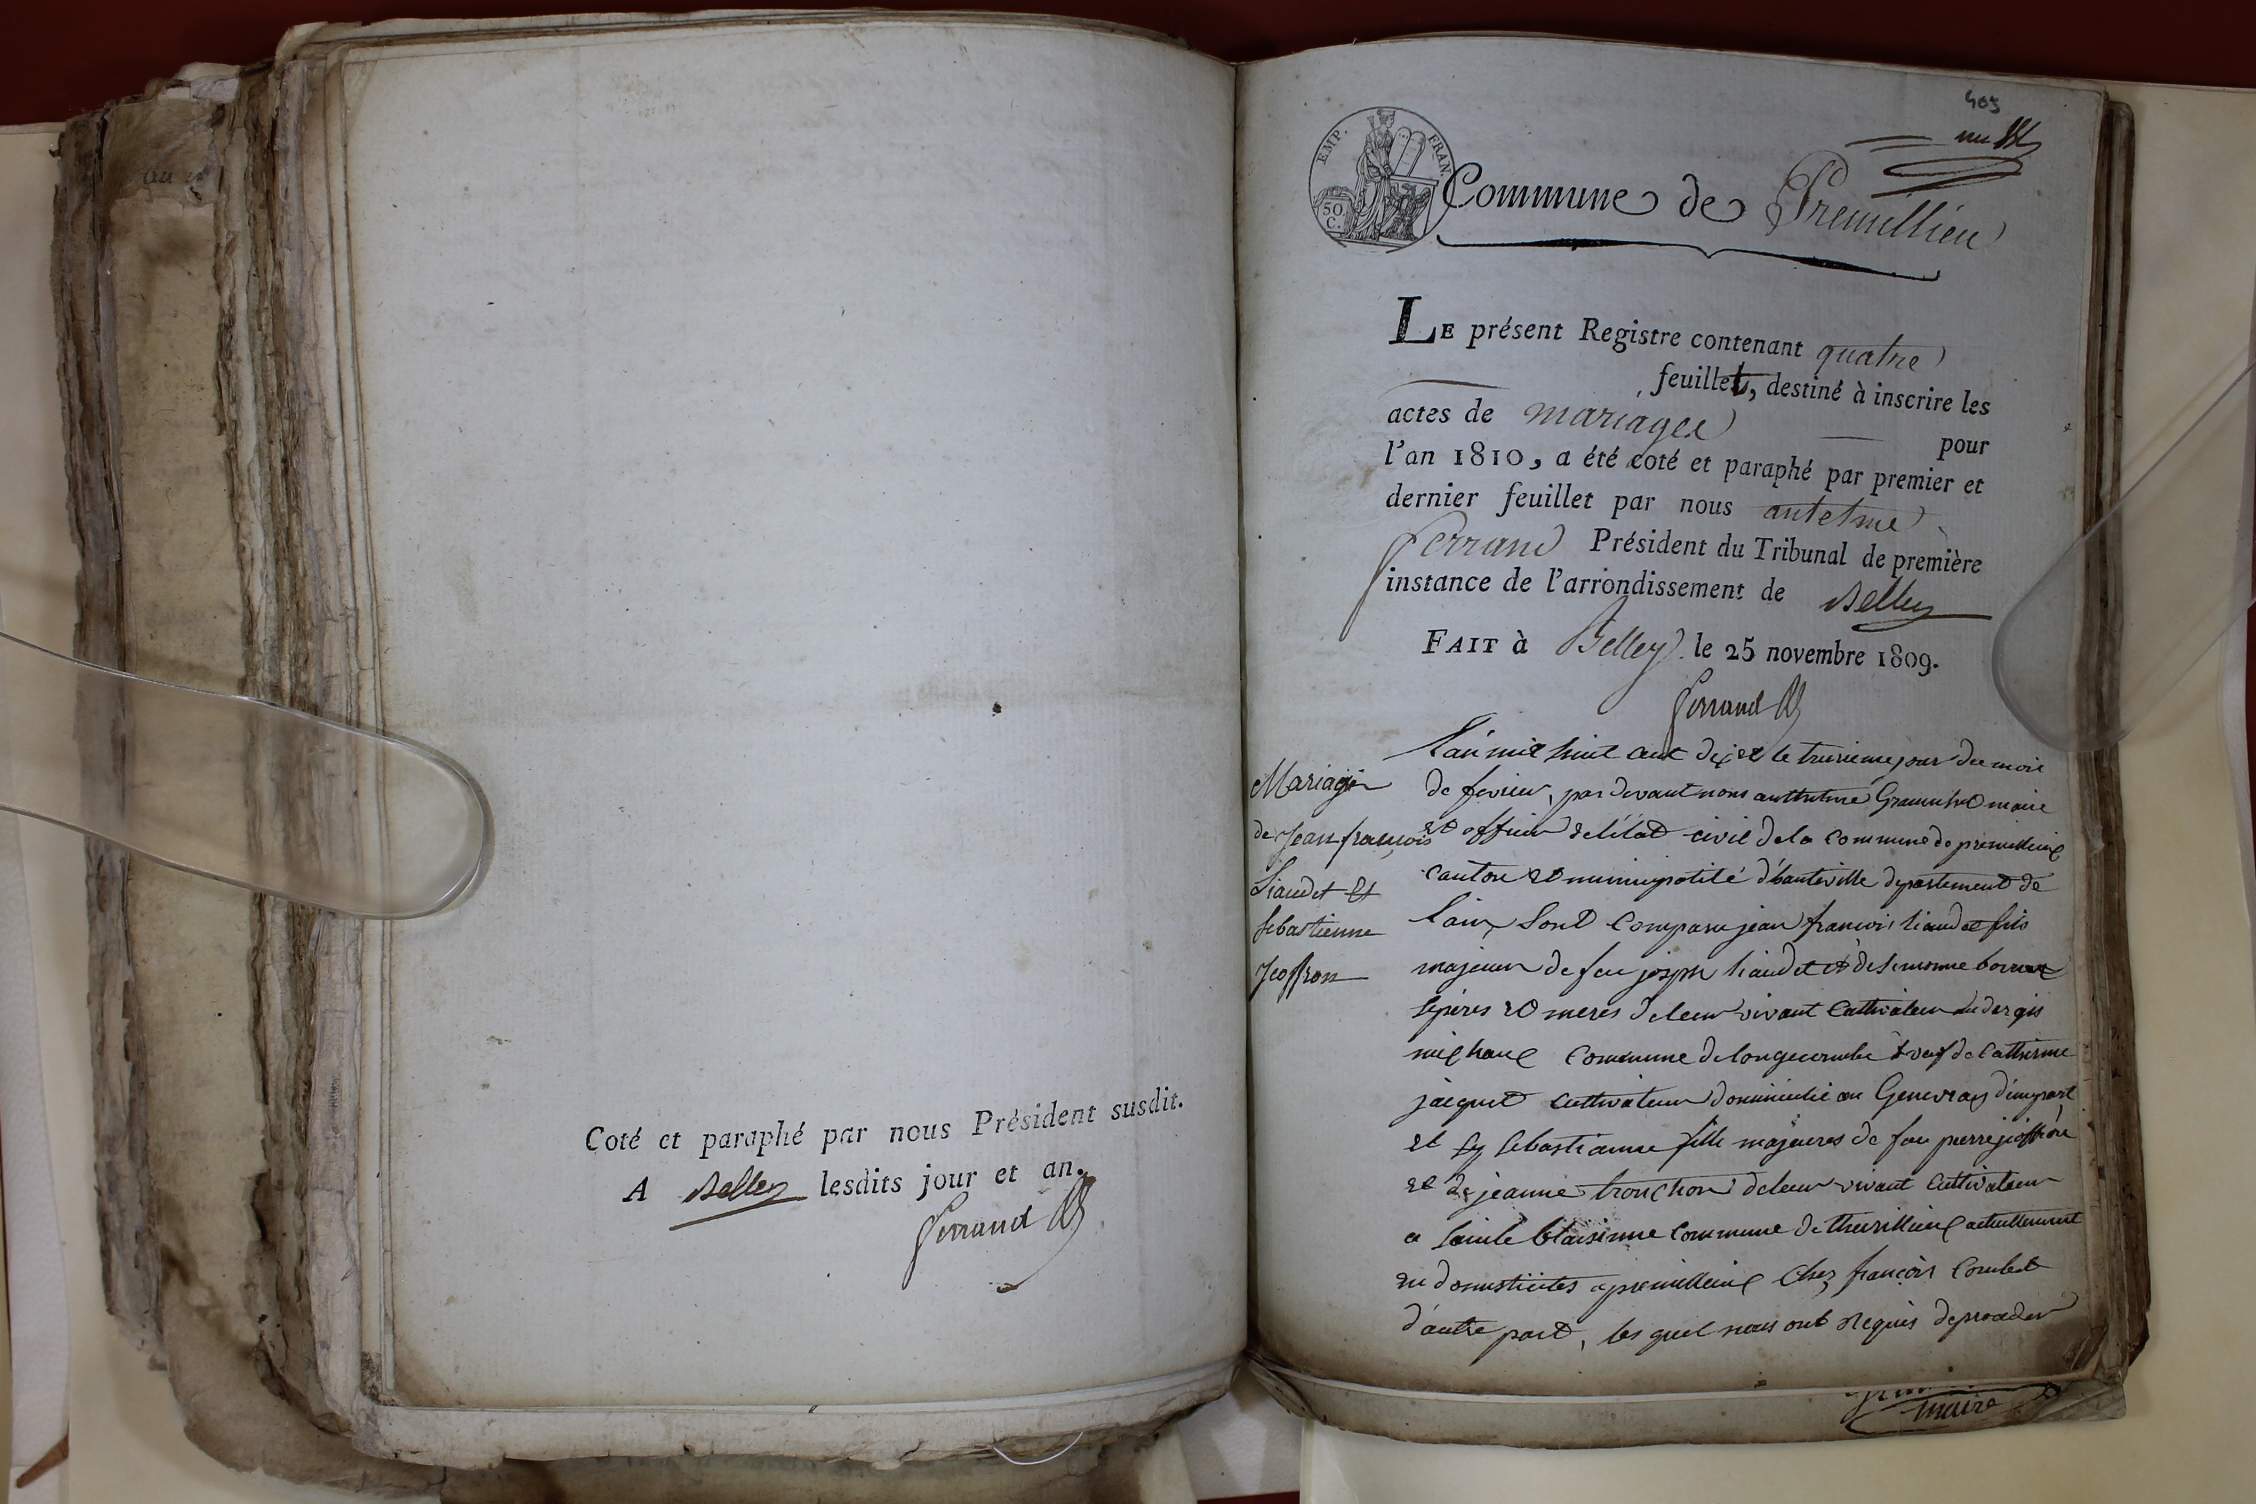 Coté et paraphé par nous Président susdit.
A Belley lesdits jour et an.
Ferrand
403
EMP. FRAN.
50 C.
Commune de Premillieu
LE présent Registre contenant quatre
feuillet, destiné à inscrire les
actes de mariages pour
l'an 1810, a été coté et paraphé par premier et
dernier feuillet par nous antelme
Ferrand Président du Tribunal de première
instance de l'arrondissement de Belley
FAIT à Belley le 25 novembre 1809.
Ferrand
Mariage
de Jean françois
Liaudet Et
sebastienne
Jeoffron
L'an mil huit cent dix et le treisieme jour du mois
de fevrier, par devant nous anthelme maire
et officier de l'état civil de la commune de premillieux
canton et municipalité d'hauteville departement de
l'ain, sont comparu jean francois liaudet fils
majeur de feu joseph liaudet et de
pères et meres de leur vivant cultivateur
commune de longecombe veuf de Catherine
jaiquet cultivateur domicilié au Genevray d'une part
et sebastianne fille majeures de feu pierre jioffron
et de jeanne tronchon de leur vivant cultivateur
a sainte blaisinne commune de thezillieux actuellement
en domesticites a premillieux chez françois Combet
d'autre part, les quel nous ont requis de proceder
maire